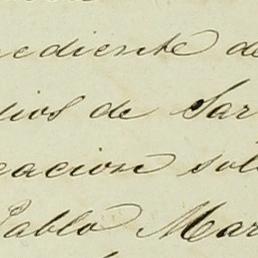 ediente de
dios de Sar
cacion soli
Pablo Mar